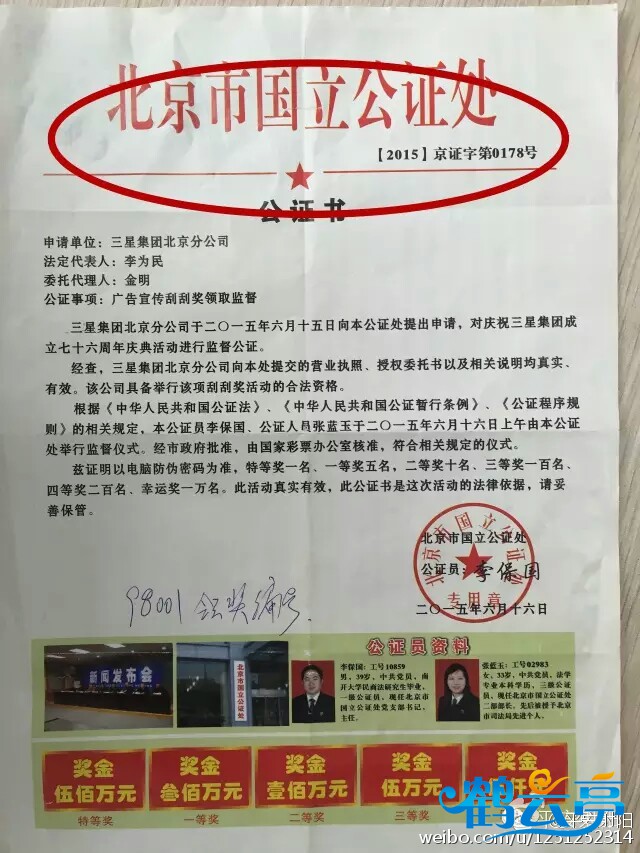 北京市国立公证处
【2015】京证字第0178号
公证书
申请单位：三星集团北京分公司
法定代表人：李为民
委托代理人：金明
公证事项：广告宣传刮刮奖领取监督
三星集团北京分公司于二〇一五年六月十五日向本公证处提出申请，对庆祝三星集团成
立七十六周年庆典活动进行监督公证。
经查，三星集团北京分公司向本处提交的营业执照、授权委托书以及相关说明均真实、
有效。该公司具备举行该项刮刮奖活动的合法资格。
根据《中华人民共和国公证法》、《中华人民共和国公证暂行条例》、《公证程序规
则》的相关规定，本公证员李保国、公证人员张蓝玉于二〇一五年六月十六日上午由本公证
处举行监督仪式。经市政府批准，由国家彩票办公室核准，符合相关规定的仪式。
兹证明以电脑防伪密码为准，特等奖一名、一等奖五名，二等奖十名、三等奖一百名、
四等奖二百名、幸运奖一万名。此活动真实有效，此公证书是这次活动的法律依据，请妥
善保管。
北京市国立公证处
北京市国立公证处
公证员：李保国
专用章
二〇一五年六月十六日
98001
公证员资料
新闻发布会
北京市国立公证处
李保国：工号10859
男，39岁，中共党员，南
开大学民商法研究生毕业，
一级公证员，现任北京市
国立公证处党支部书记，
主任。
张蓝玉：工号02983
女，33岁，中共党员，法学
专业本科学历，三级公证
员，现任北京市国立公证处
二部部长。先后被授予北京
市司法局先进个人。
奖金
伍佰万元
特等奖
奖金
叁佰万元
一等奖
奖金
壹佰万元
二等奖
奖金
伍万元
三等奖
奖金
鹤云亭
weibo.com/u/1231252314